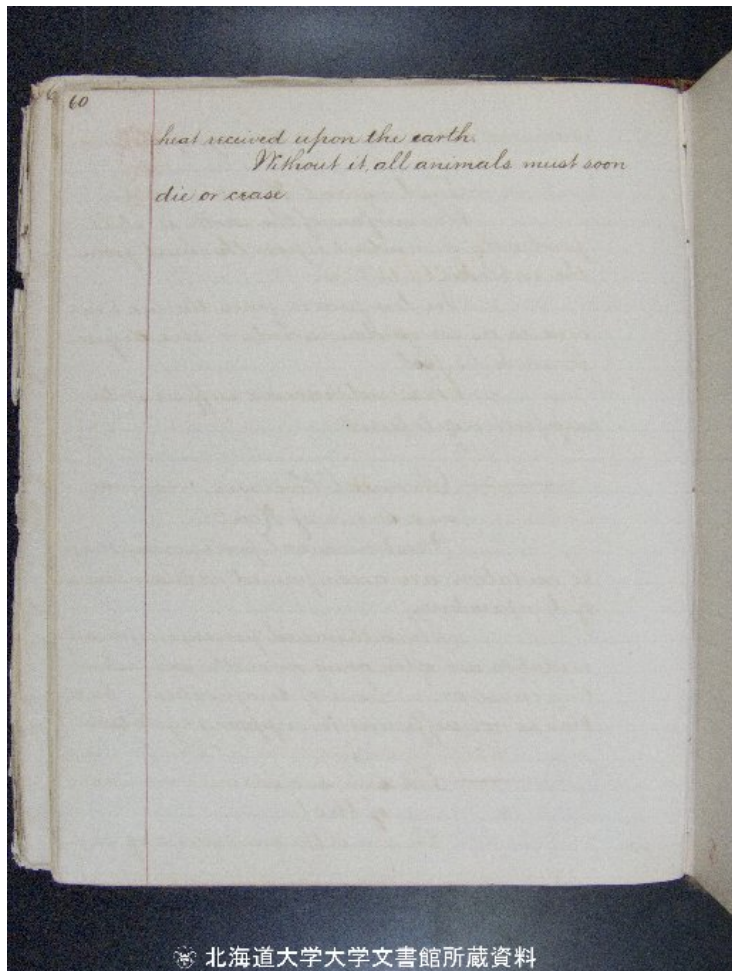 60
heat received upon the earth.
Without it, all animals must soon
die or cease
北海道大学大学文書館所蔵資料